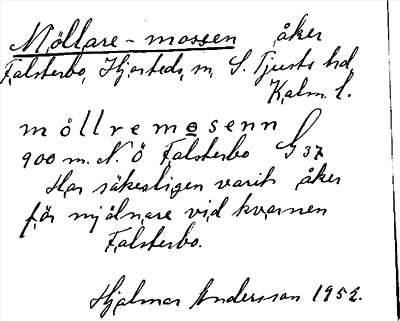 Möllare-mossen åker
Falsterbo, Hjorteds, sn, S. Tjusts hd,
Kalm. l.
möllremosenn
900 m. N. Ö Falsterbo G 37
Har säkerligen varit åker
för mjölnare vid kvarnen
Falsterbo.
Hjalmar Andersson 1952.